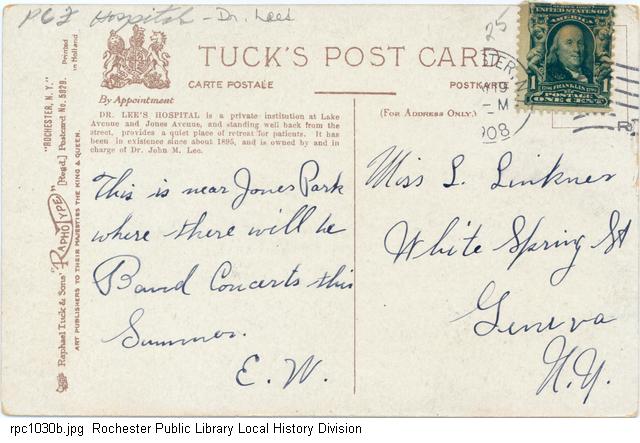 PGF Hospitals - Dr. Lees
25
TUCK'S POST CARD
CARTE POSTALE
POSTKAR
By Appointment
(For Address Only.)
DR. LEE'S HOSPITAL is a private institution at Lake
Avenue and Jones Avenue, and standing well back from the
street, provides a quiet place of retreat for patients. It has
been in existence since about 1895, and is owned by and in
charge of Dr. John M. Lee.
This is near Jones Park
where there will be
Band Concerts this
Summer.
E. W.
UNITED STATES OF AMERICA
1 1
FRANKLIN
POSTAGE
ONE CENT
STER, N.
9
-M
1908
Miss L. Linkner
White Spring St
Geneva
N.Y.
Printed
in Holland
"ROCHESTER, N. Y."
[Regd.] Postcard No. 5929.
Raphael Tuck & Sons' "RAPHOTYPE"
ART PUBLISHERS TO THEIR MAJESTIES THE KING & QUEEN.
rpc1030b.jpg Rochester Public Library Local History Division